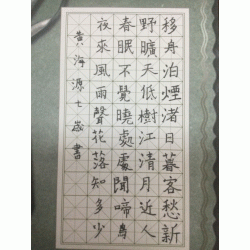 移舟泊煙渚日暮客愁新
野曠天低樹江清月近人
春眠不覺曉處處聞啼鳥
夜來風雨聲花落知多少
黄海源七歲書